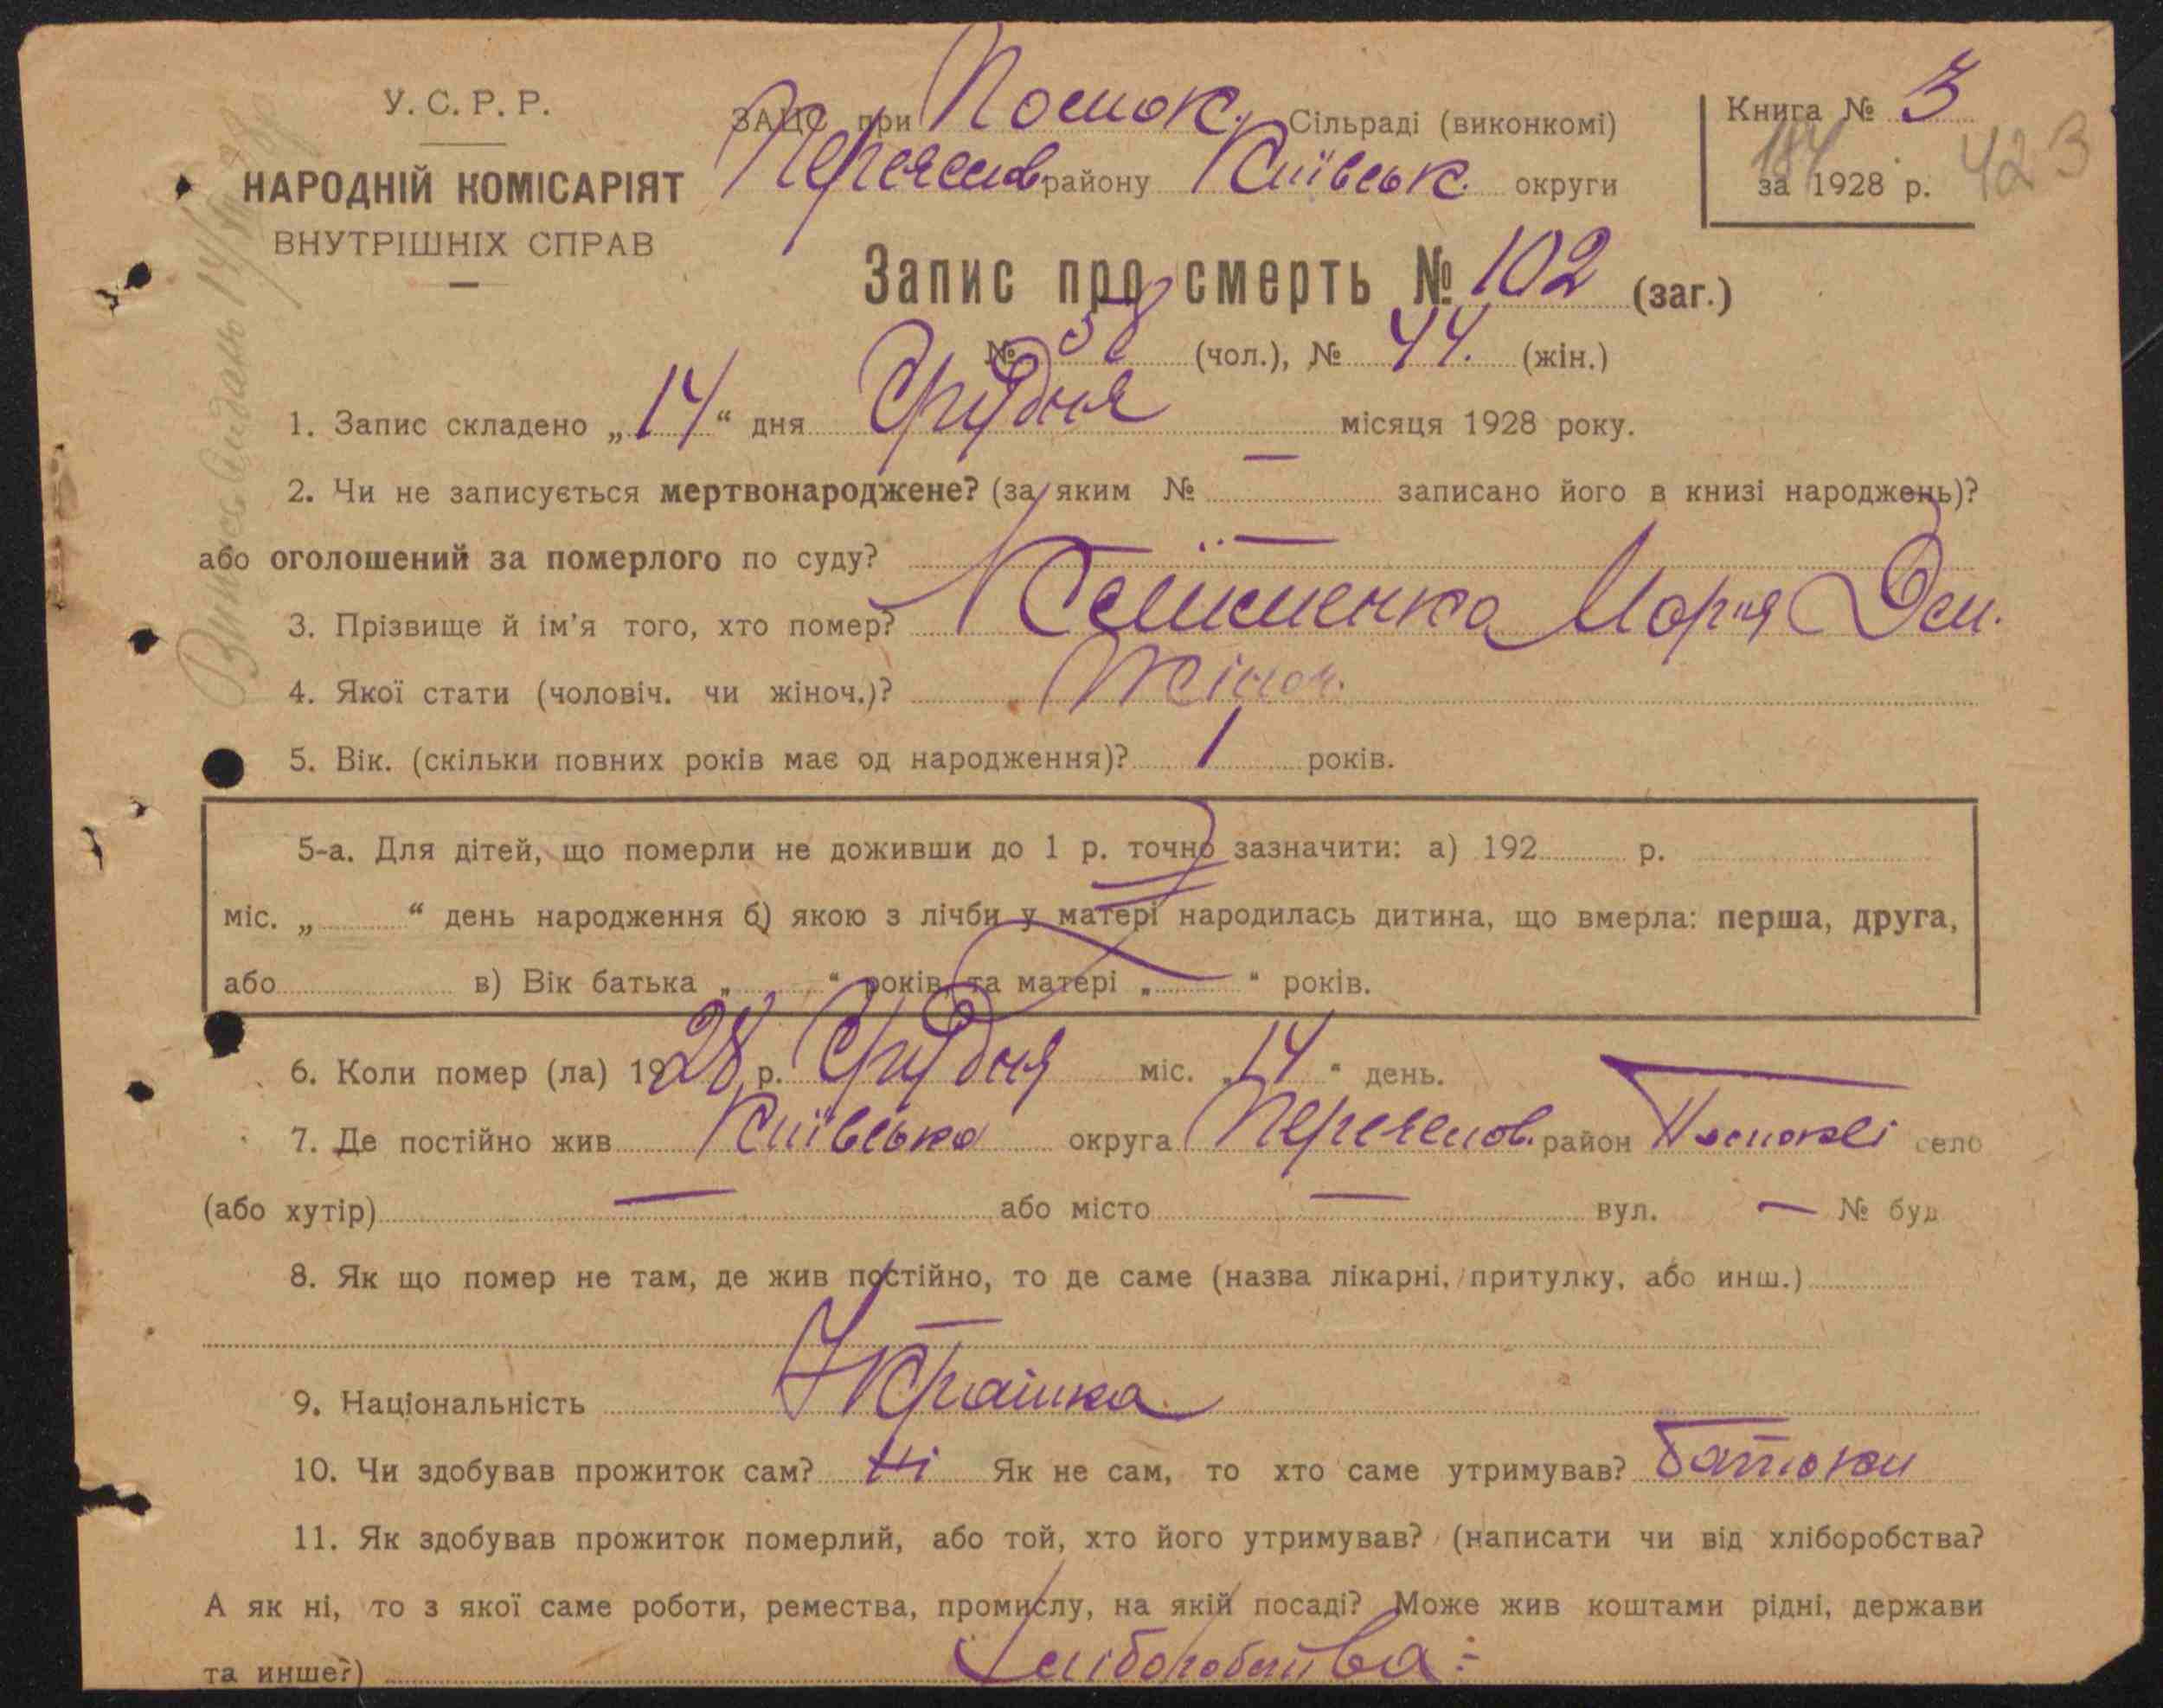 У. С. Р. Р.
НАРОДНІЙ КОМІСАРІЯТ
ВНУТРІШНІХ СПРАВ
ЗАЦС при Сільраді (виконкомі)
району Київськ. округи
Книга № 3
за 1928 р.
184
423
Запис про смерть № 102 (заг.)
№ 58 (чол.), № 44. (жін.)
1. Запис складено „14“ дня Грудня місяця 1928 року.
2. Чи не записується мертвонароджене? (за яким № — записано його в книзі народжень)?
або оголошений за померлого по суду? —
3. Прізвище й ім'я того, хто помер? Марія Дем.
4. Якої стати (чоловіч. чи жіноч.)? Жіноч.
5. Вік. (скільки повних років має од народження)? 1 років.
5-а. Для дітей, що померли не доживши до 1 р. точно зазначити: а) 192 р.
міс. „ “ день народження б) якою з лічби у матері народилась дитина, що вмерла: перша, друга,
або в) Вік батька „ “ років, та матері „ “ років.
6. Коли помер (ла) 1928 р. Грудня міс. „14“ день.
7. Де постійно жив Київська округа район село
(або хутір) — або місто — вул. — № буд
8. Як що помер не там, де жив постійно, то де саме (назва лікарні, притулку, або инш.)
—
9. Національність Украінка
10. Чи здобував прожиток сам? Ні Як не сам, то хто саме утримував? Батьки
11. Як здобував прожиток померлий, або той, хто його утримував? (написати чи від хліборобства?
А як ні, то з якої саме роботи, ремества, промислу, на якій посаді? Може жив коштами рідні, держави
та инше?) Хліборобства